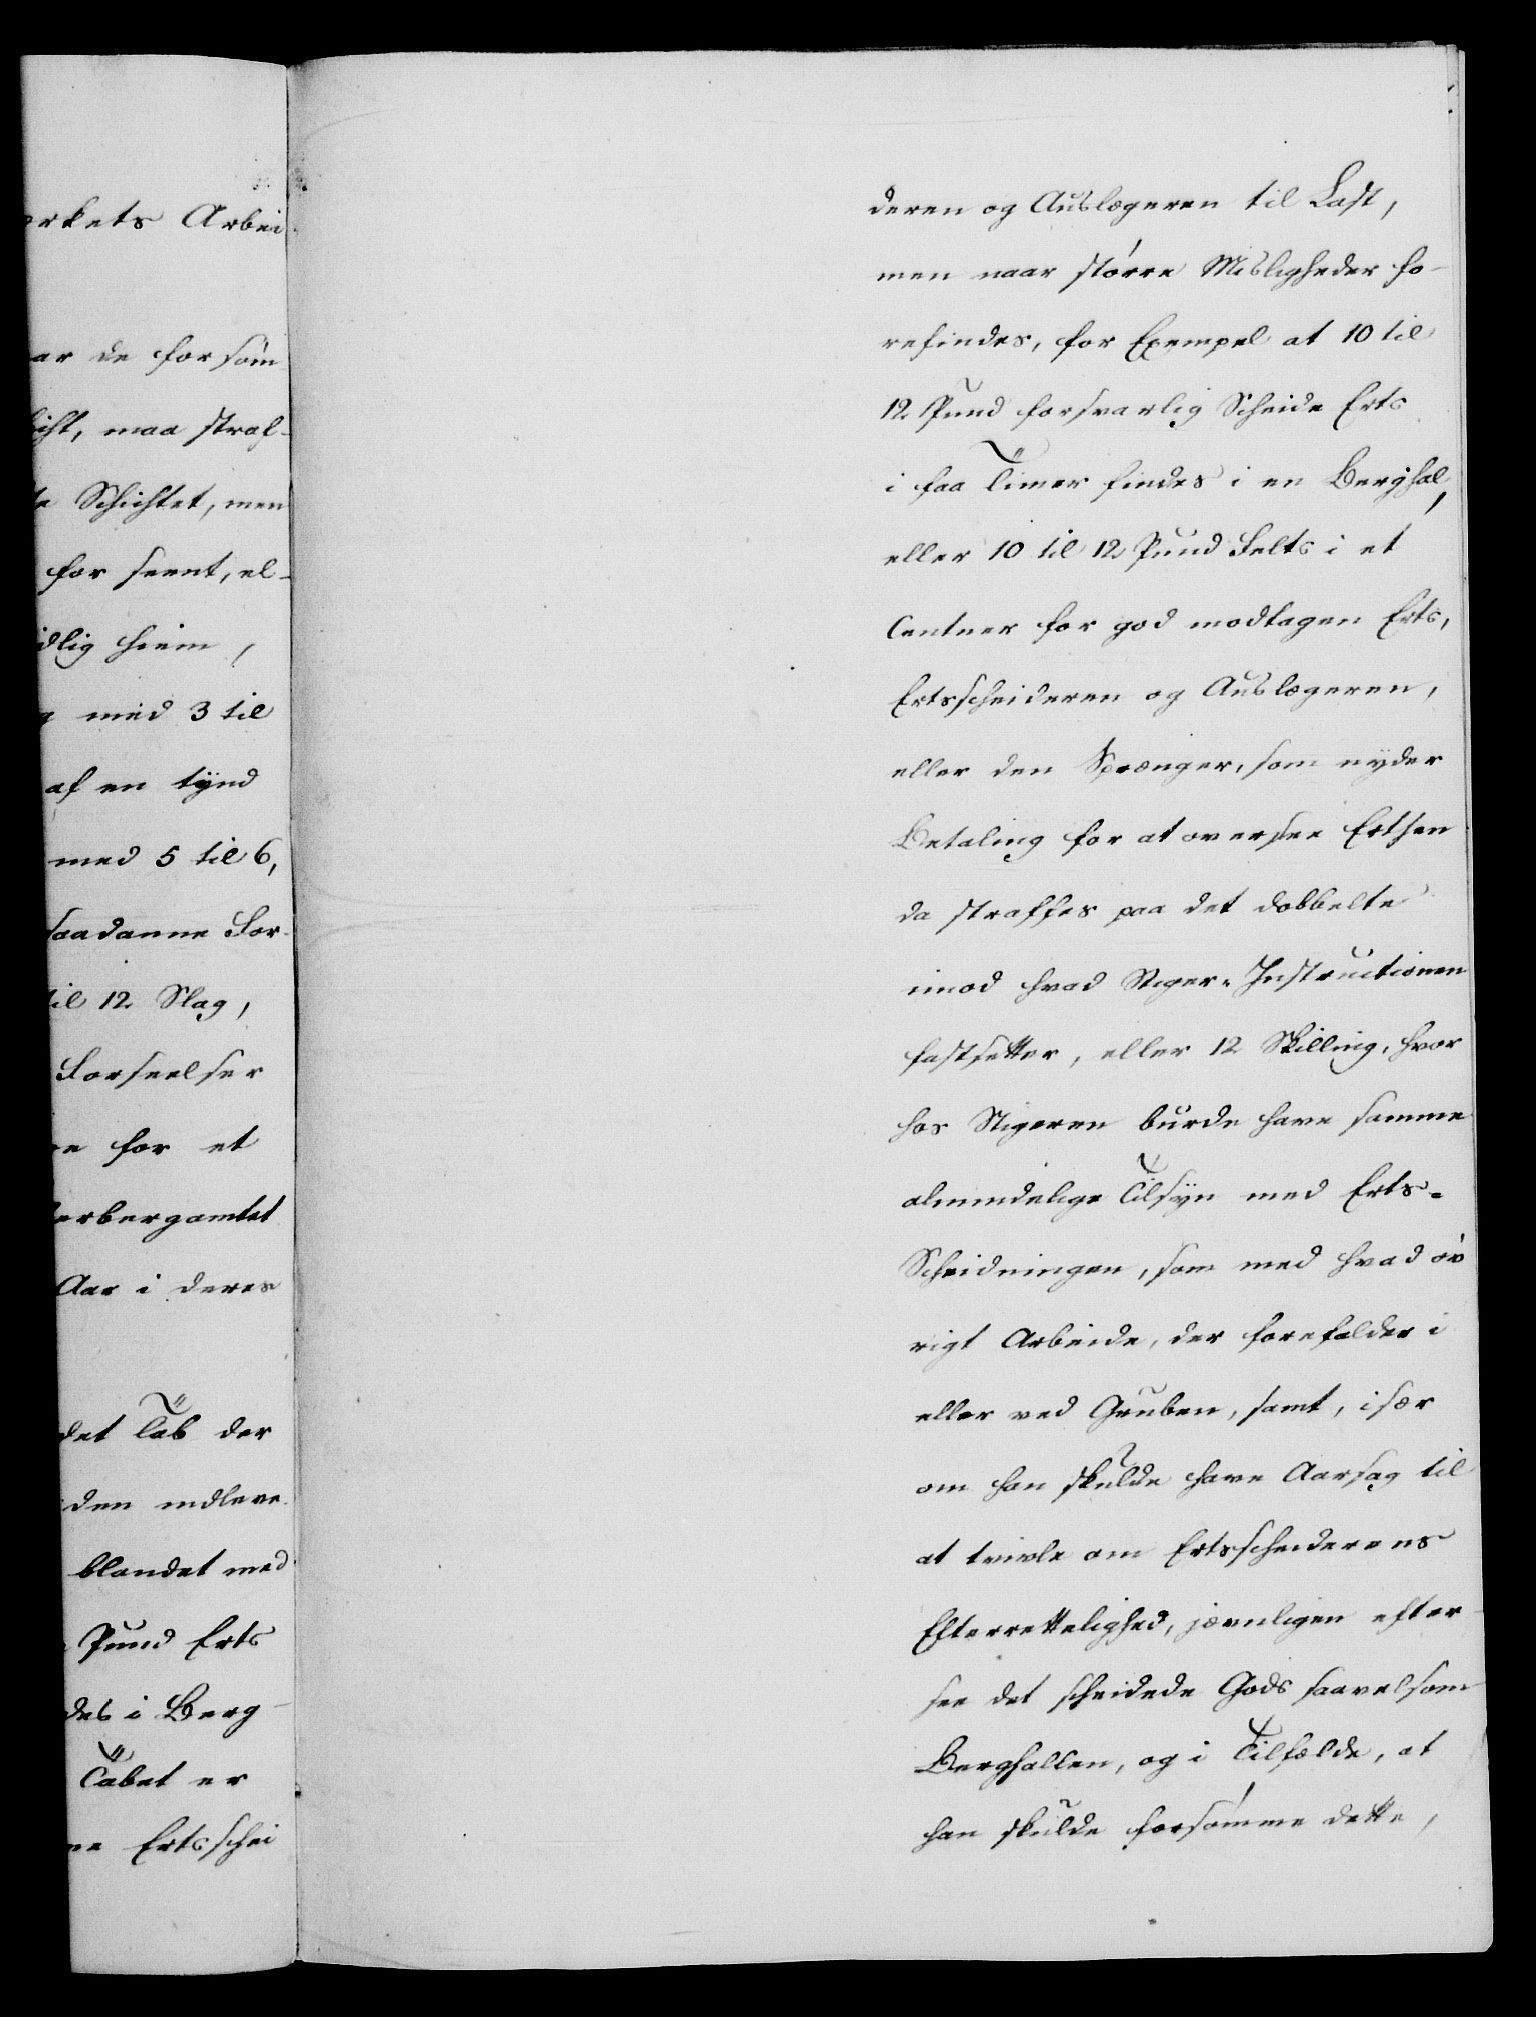 rkets Arbei
ar de forsöm
icht, maa straf-
te Schichtet, men
for seent, el-
idlig hiem,
med 3 til
af en tynd
med 5 til 6,
saadanne For-
til 12 Slag,
Forseelser
re for et
erbergamtet
Aar i deres
det Tab der
den indleve-
blandet med
Pund Erts
des i Berg-
Tabet er
ne Ertsschei
deren og Auslægeren til Last,
men naar större Misligheder fo-
refindes, for Exempel at 10 til
12 Pund forsvarlig Scheide Erts
i faa Timer findes i en Berghal,
eller 10 til 12 Pund Felts i et
Centner for god modtagen Erts,
Ertsscheideren og Auslægeren,
eller den Sprænger, som nyder
Betaling for at oversee Ertsen
da straffes paa det dobbelte
imod hvad Stiger-Instructionen
fastsetter, eller 12 Skilling, hvor
hos Stigeren burde have samme
almindelige Tilsyn med Erts-
Scheidningen, som med hvad öv
rigt Arbeide, der forefalder i
eller ved Gruben, samt, især
om han skulde have Aarsag til
at tvivle om Ertsscheiderens
Efterrettelighed, jævnligen efter-
see det scheidede Gods saavelsom
Berghallen, og i Tilfælde, at
han skulde forsömme dette,